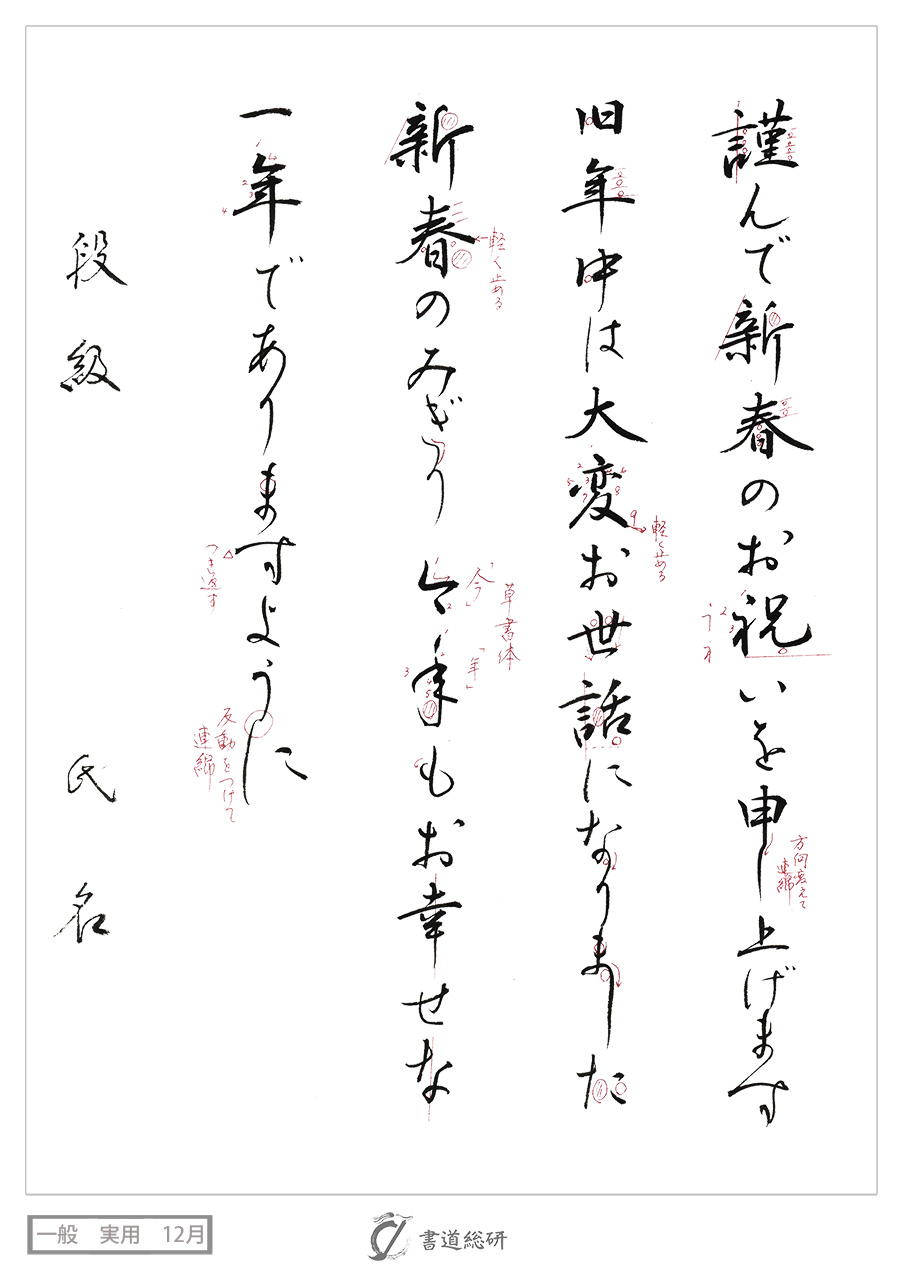 謹んで新春のお祝いを申し上げます
方向変えて
連綿
旧年中は大変お世話になりました
軽く止める
新春のみぎり 今年もお幸せな
軽く止める
草書体
「今」
「年」
一年でありますように
つき返す
反動をつけて
連綿
段級 氏名
一般 実用 12月
書道総研